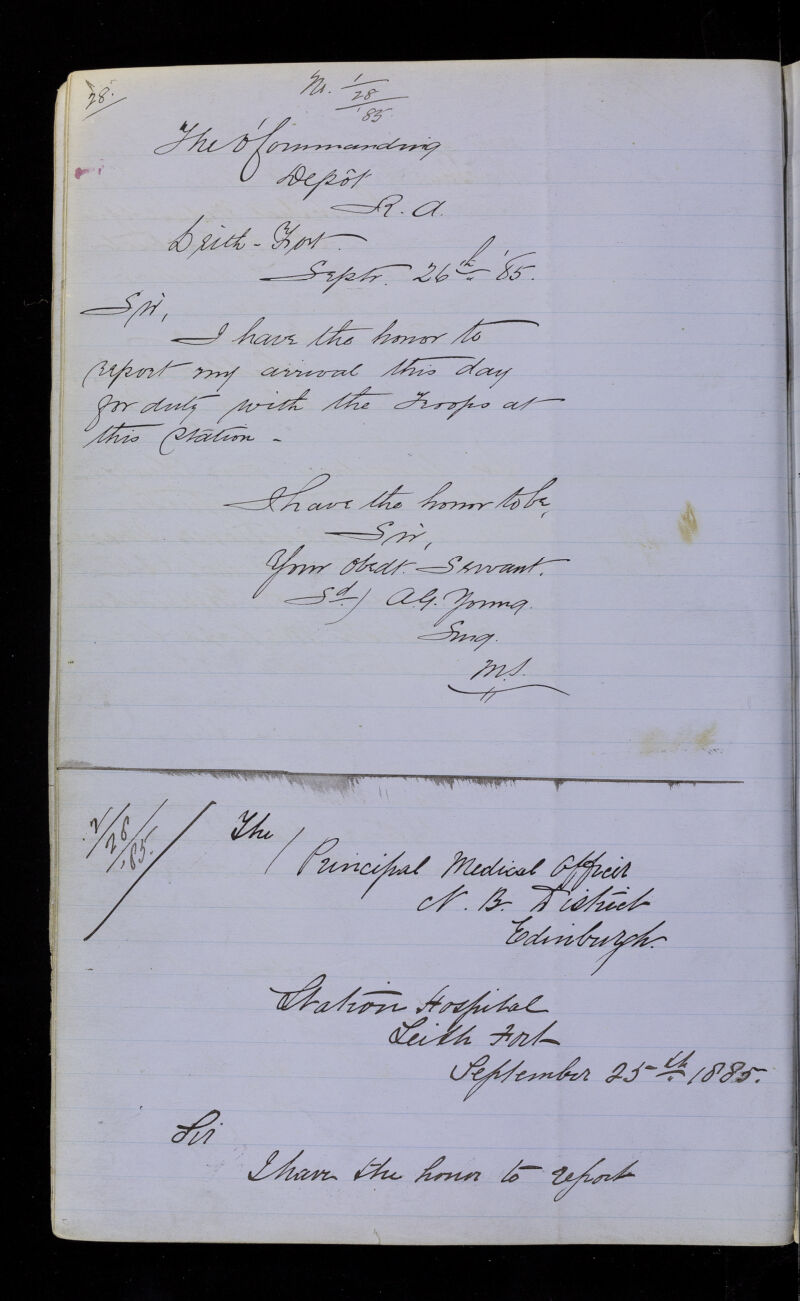 28.
No. 1/28/85.
The O'Commanding
Depôt
R. A.
Leith-Fort.
Septr. 26th '85.
Sir,
I have the honor to
report my arrival this day
for duty with the Troops at
this Station -
I have the honor to be,
Sir,
Your Obedt. Servant.
Sd.) A.G. Young.
Surg.
M.S.
2/28/85.
The
Principal Medical Officer
N. B. District
Edinburgh.
Station Hospital
Leith Fort
September 25th 1885.
Sir
I have the honor to report